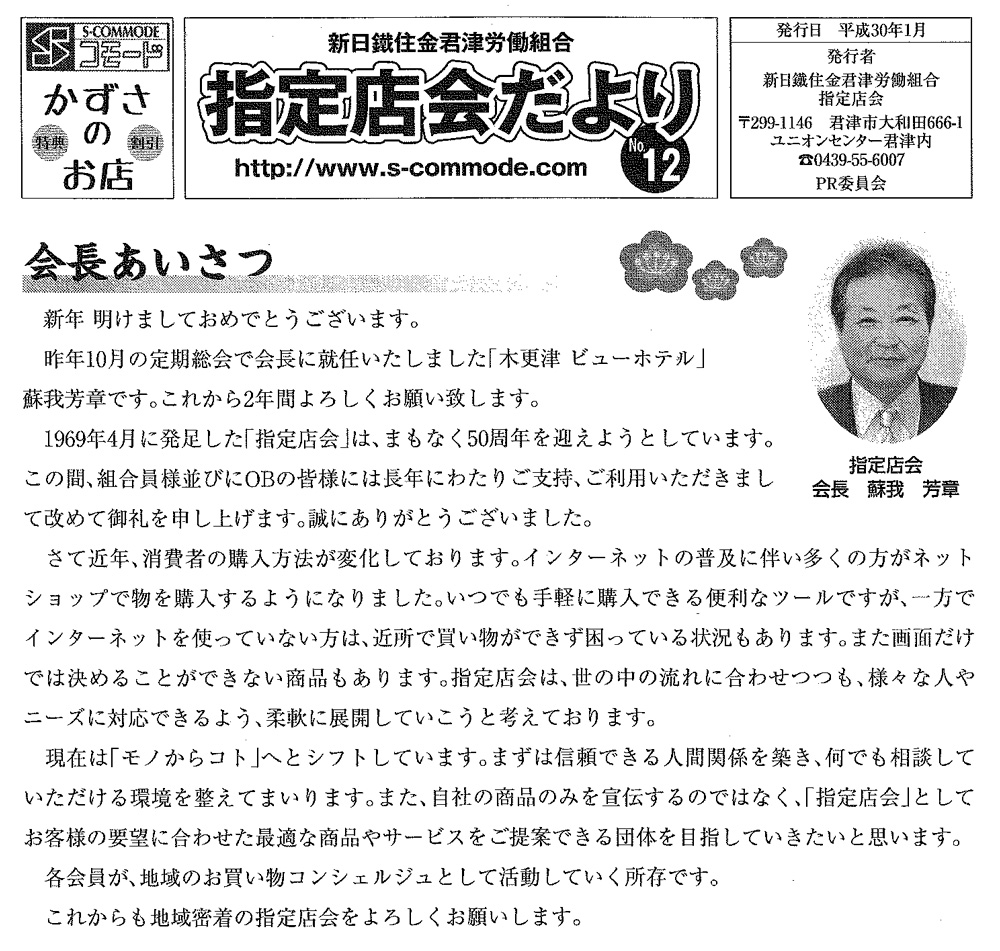 S-COMMODE
コモード
かずさ
の
特典
割引
お店
新日鐵住金君津労働組合
指定店会だより
No 12
http://www.s-commode.com
発行日 平成30年1月
発行者
新日鐵住金君津労働組合
指定店会
〒299-1146 君津市大和田666-1
ユニオンセンター君津内
☎0439-55-6007
PR委員会
会長あいさつ
新年 明けましておめでとうございます。
昨年10月の定期総会で会長に就任いたしました「木更津 ビューホテル」
蘇我芳章です。これから2年間よろしくお願い致します。
1969年4月に発足した「指定店会」は、まもなく50周年を迎えようとしています。
この間、組合員様並びにOBの皆様には長年にわたりご支持、ご利用いただきまし
て改めて御礼を申し上げます。誠にありがとうございました。
指定店会
会長 蘇我 芳章
さて近年、消費者の購入方法が変化しております。インターネットの普及に伴い多くの方がネット
ショップで物を購入するようになりました。いつでも手軽に購入できる便利なツールですが、一方で
インターネットを使っていない方は、近所で買い物ができず困っている状況もあります。また画面だけ
では決めることができない商品もあります。指定店会は、世の中の流れに合わせつつも、様々な人や
ニーズに対応できるよう、柔軟に展開していこうと考えております。
現在は「モノからコト」へとシフトしています。まずは信頼できる人間関係を築き、何でも相談して
いただける環境を整えてまいります。また、自社の商品のみを宣伝するのではなく、「指定店会」として
お客様の要望に合わせた最適な商品やサービスをご提案できる団体を目指していきたいと思います。
各会員が、地域のお買い物コンシェルジュとして活動していく所存です。
これからも地域密着の指定店会をよろしくお願いします。